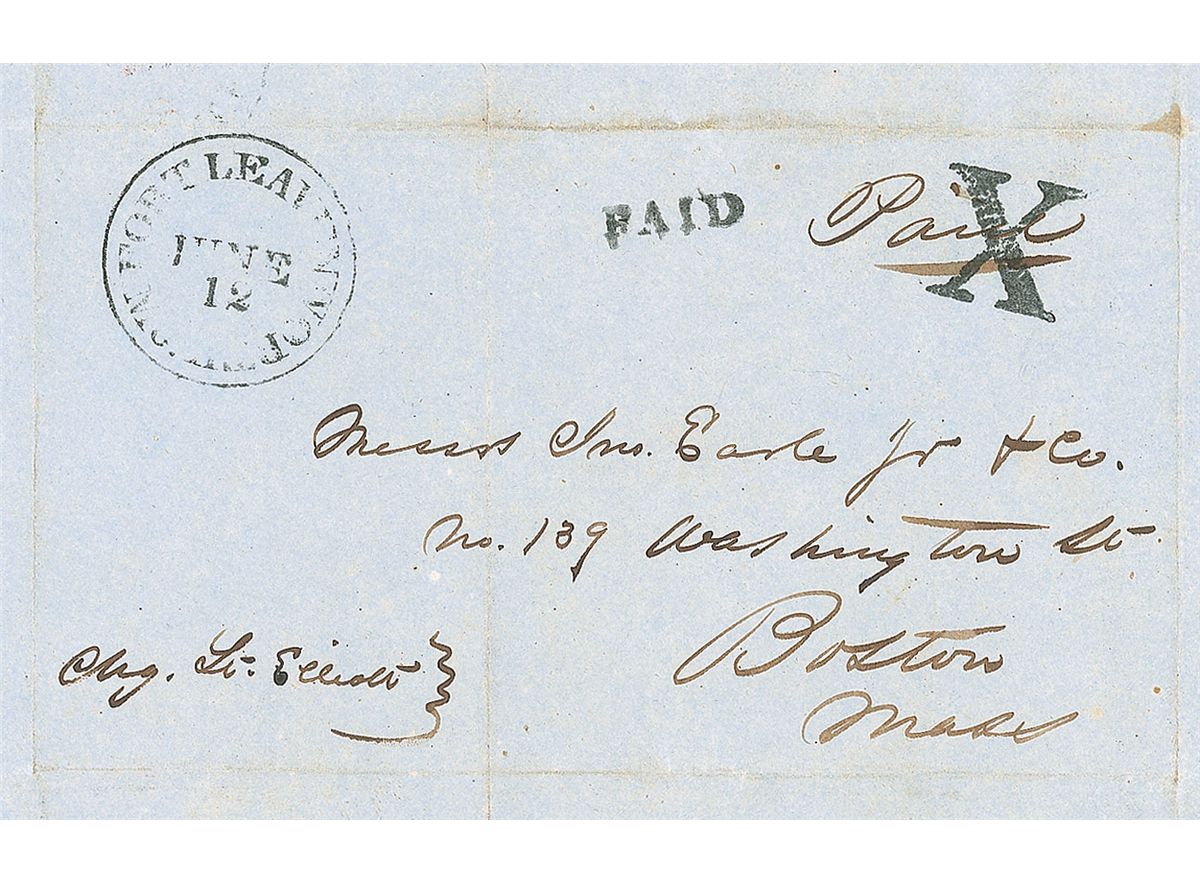 FORT LEAVENWORTH Mo.
JUNE
12
PAID
Paid
X
Messrs Jno. Earle Jr & Co.
No. 139 Washington St.
Boston
Mass
Chg. Lt. Elliott